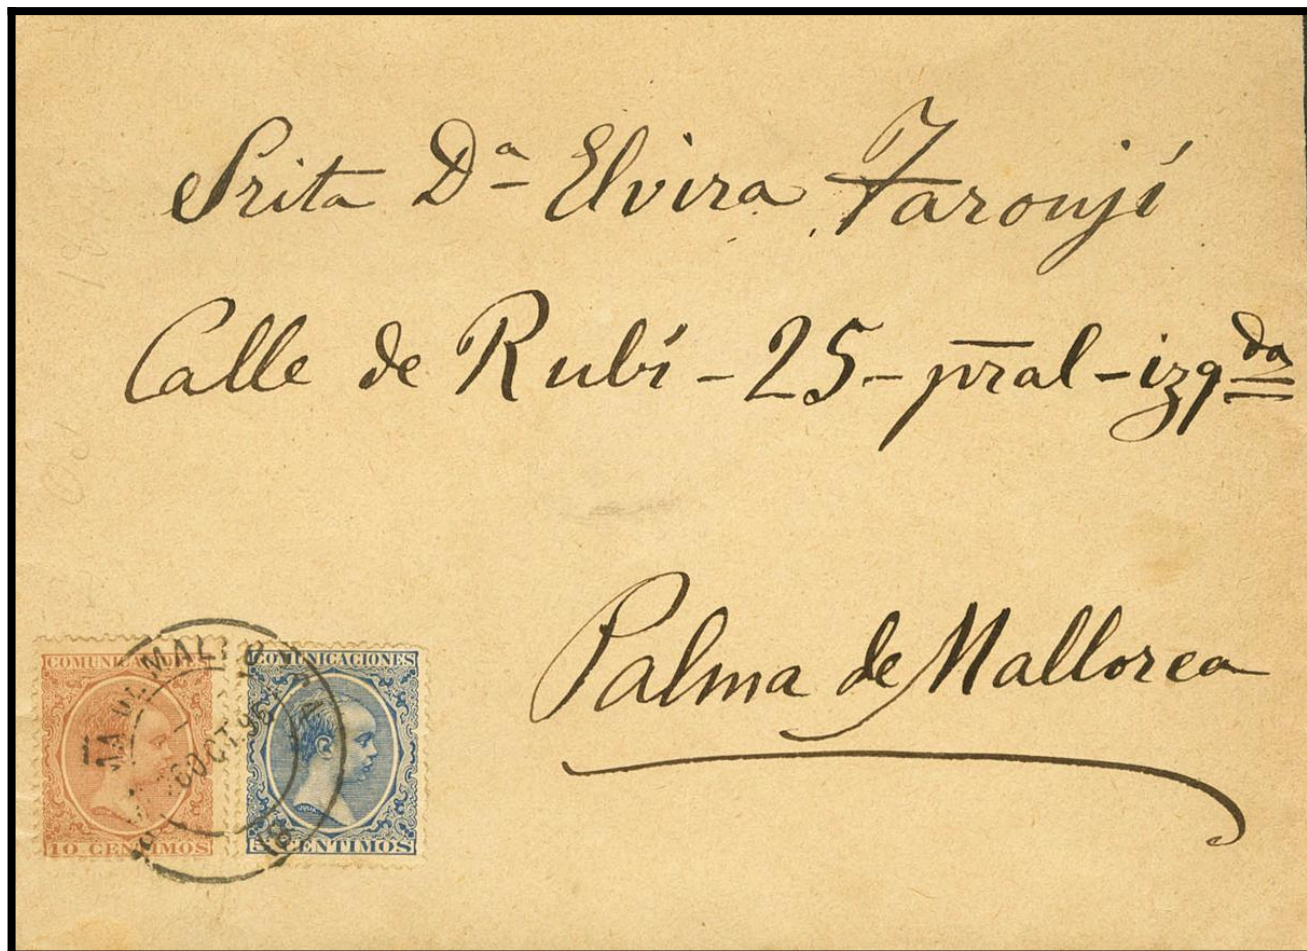 Srita Dª Elvira Taronjí
Calle de Rubí - 25 - pral - izqda
Palma de Mallorca
COMUNICACIONES
10 CENTIMOS
COMUNICACIONES
5 CENTIMOS
OCT